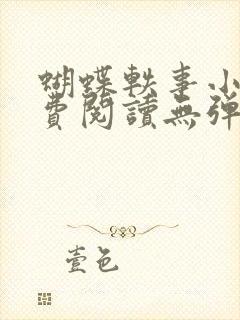 蝴蝶軼事小
費閱讀無彈
壹色